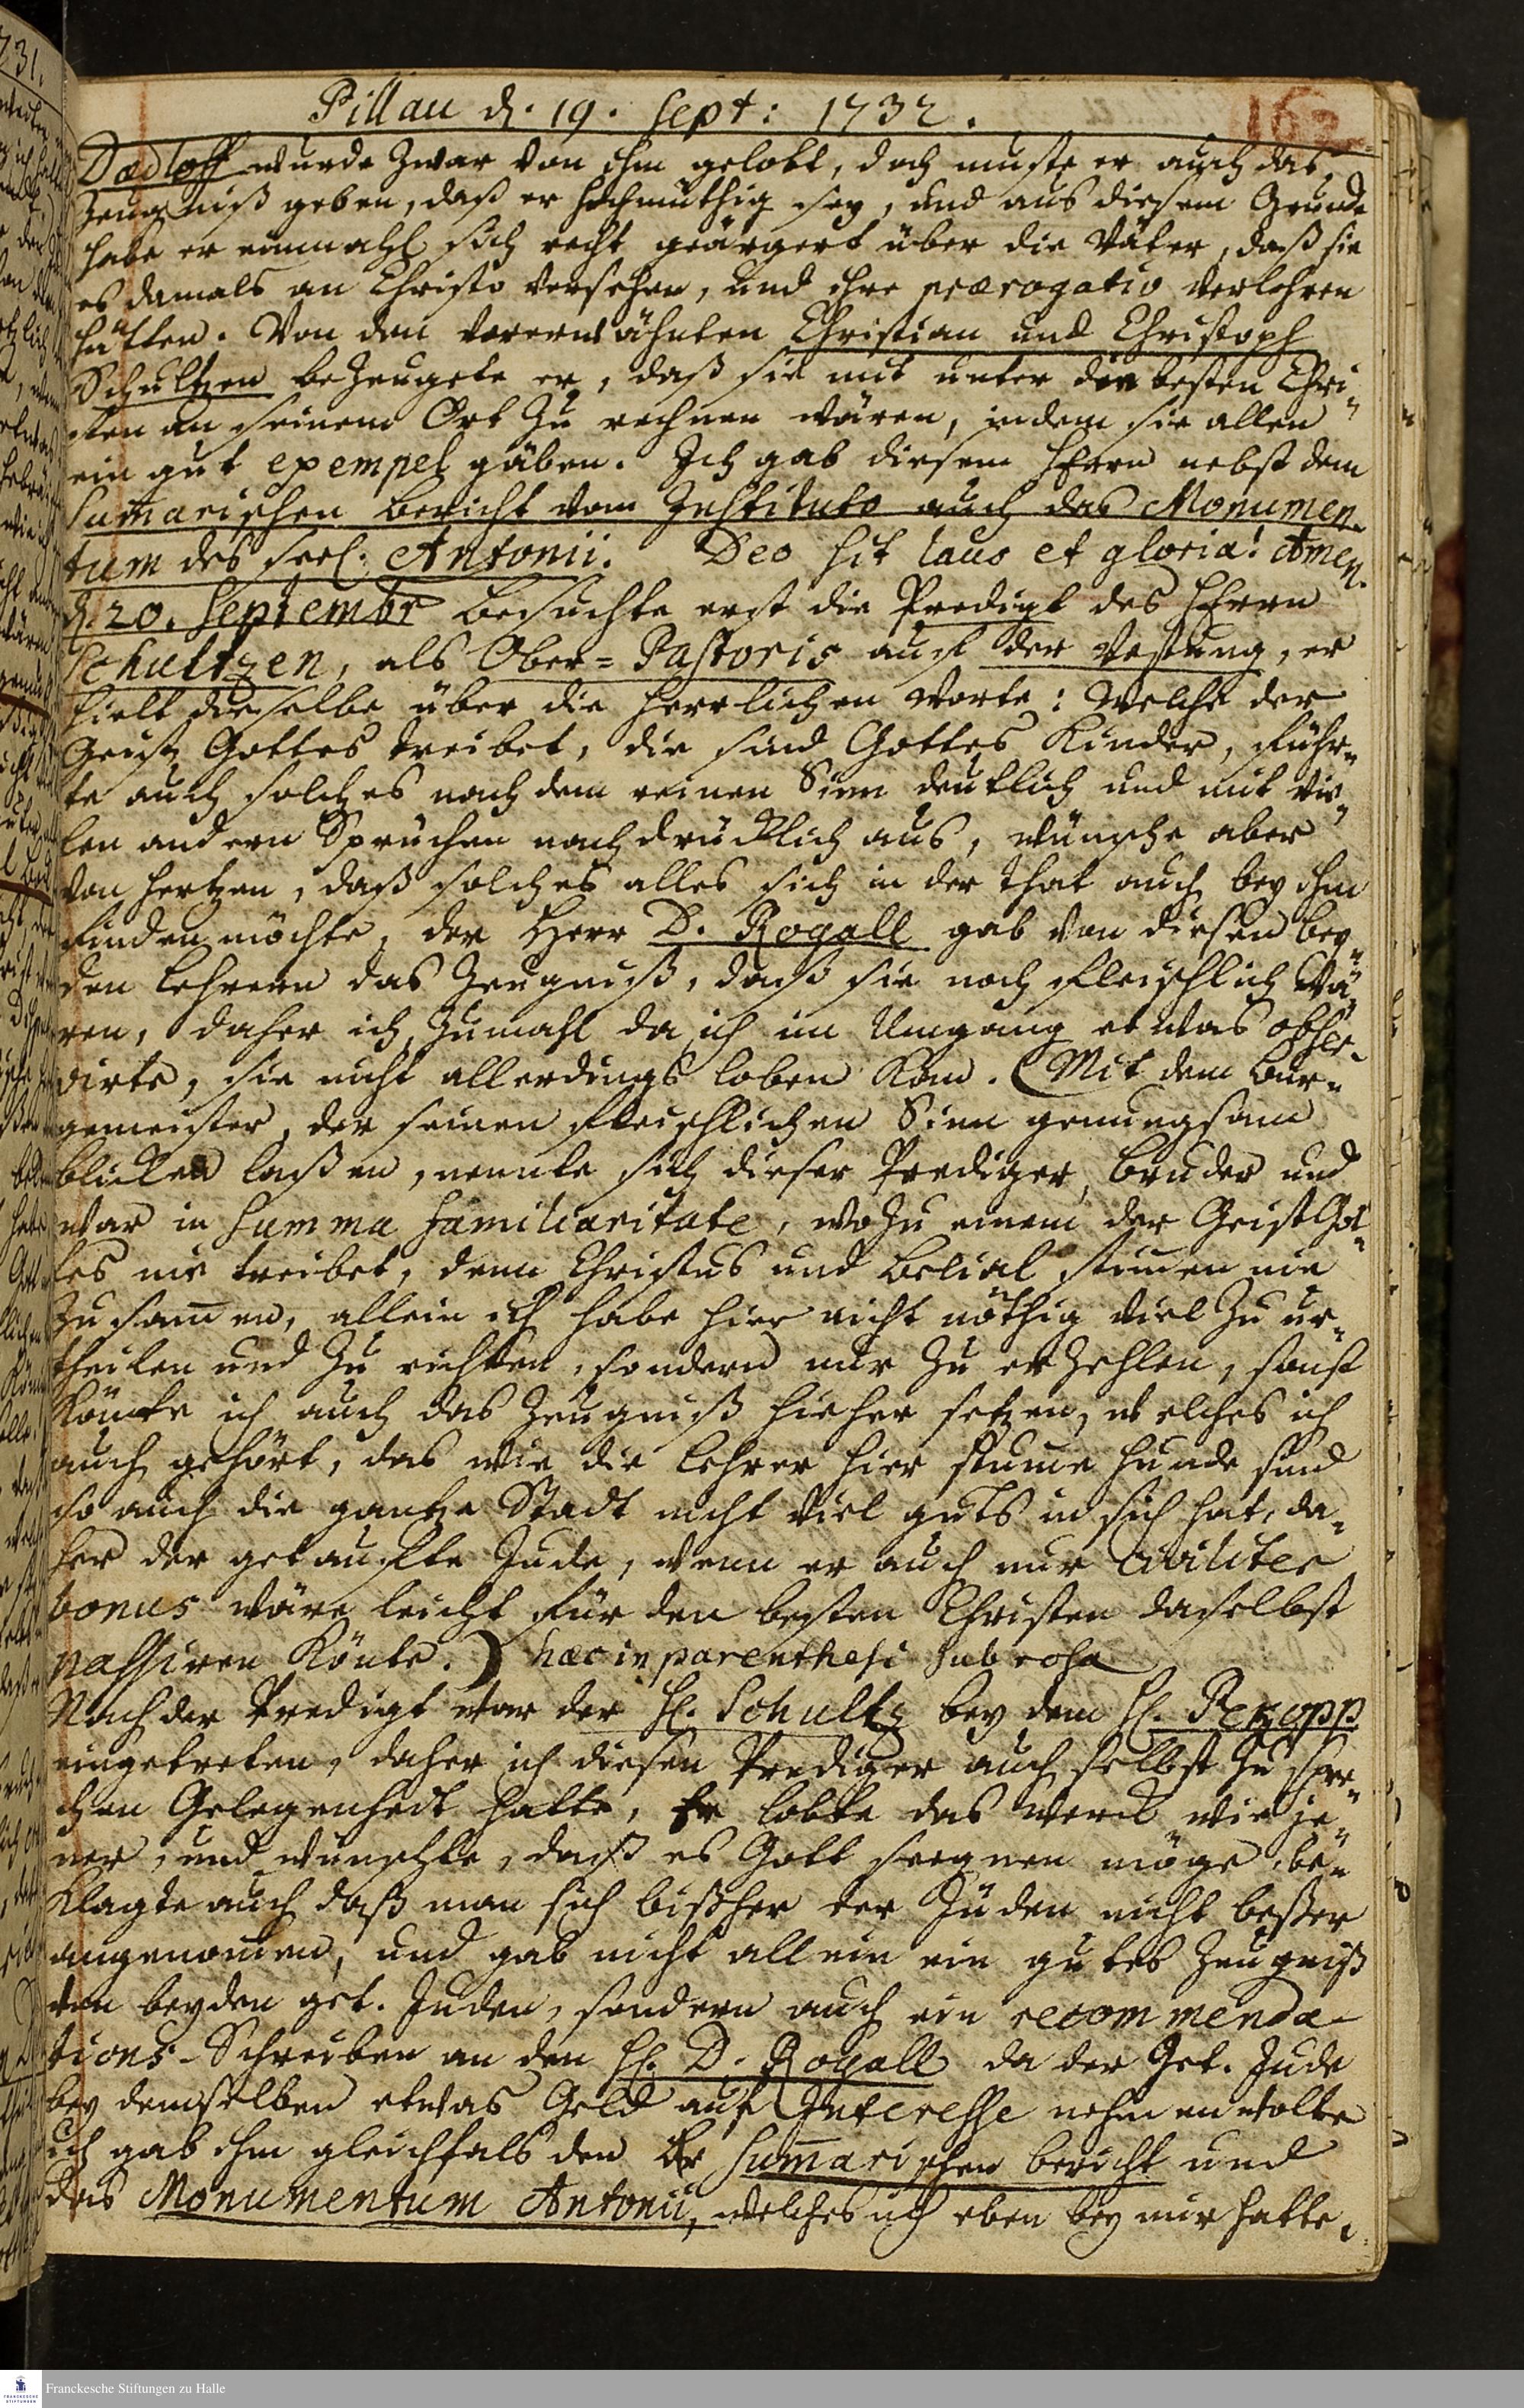 Pillau d. 19. Sept: 1732.
162
Dædloff wurde zwar von ihm gelobt, doch muste er auch das
Zeugniß geben, daß er hochmüthig sey, und aus diesem Grunde
habe er einmahl sich recht geärgert über die Väter, daß sie
es damals an Christo versehen, und ihre prærogativ verlohren
hätten. Von den vorerwähnten Christian und Christoph
Schultzen bezeugete er, daß sie mit unter die besten Chri-
sten an seinem Ort zu rechnen wären, indem sie allen
ein gut exempel gäben. Ich gab diesem Herrn nebst dem
Summarischen Bericht vom Instituto auch das Monumen-
tum des seel. Antonii. Deo sit laus et gloria! Amen.
d. 20. Septembr besuchte erst die Predigt des Herrn
Schultzen, als Ober-Pastoris auf der Vestung, er
hielt dieselbe über die herrlichen Worte: Welche der
Geist Gottes treibet, die sind Gottes Kinder, führ-
te auch solches nach dem reinen Sinn deutlich und mit vie-
len andern Sprüchen nachdrücklich aus, wünsche aber
von Hertzen, daß solches alles sich in der That auch bey ihm
finden möchte, der Herr D. Rogall gab von diesen bey-
den Lehrern das Zeugniß, daß sie noch fleischlich wä-
ren, daher ich, zumahl da ich im Umgang etwas obser-
virte, sie nicht allerdings loben kan. (Mit dem Bur-
gemeister, der seinen fleischlichen Sinn genungsam
blicken laßen, nennte sich dieser Prediger, Bruder und
war in Summa familiaritate, wozu einem der Geist Got-
tes nie treibet, denn Christus und Belial stimen nie
zusam̄en, allein ich habe hier nicht nöthig viel zu ur-
theilen und zu richten, sondern nur zu erzehlen, sonst
könte ich auch das Zeugniß hieher setzen, welches ich
auch gehört, das wie die Lehrer hier stum̄e Hunde sind
so auch die gantze Stadt nicht viel guts in sich hat, da-
her der getauffte Jude, wenn er auch nur civiliter
bonus wäre, leicht für den besten Christen daselbst
passiren könte.) hæc in parenthesi sub rosa
Nach der Predigt war der H. Schultz bey dem H. Retzopp
eingetreten, daher ich diesen Prediger auch selbst zu spre-
chen Gelegenheit hatte, Er lobte das Werck wie je-
ner, und wünschte, daß es Gott seegnen möge, be-
klagte auch daß man sich bißher der Juden nicht beßer
angenom̄en, und gab nicht allein ein gutes Zeugniß
den beyden get. Juden, sondern auch ein recommenda-
tions-Schreiben an den H. D. Rogall da der Get. Jude
bey demselben etwas Geld auf Interesse nehmen wolte
ich gab ihm gleichfals den Sum̄arischen Bericht und
das Monumentum Antonii, welches ich eben bey mir hatte.
Franckesche Stiftungen zu Halle